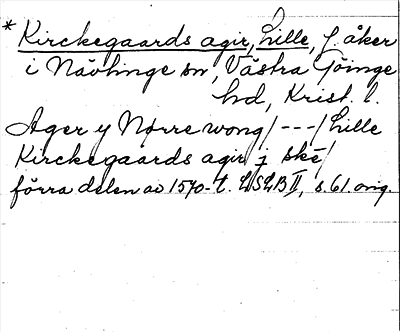 * Kirckegaards agir, Lille, f. åker
i Nävlinge sn, Västra Göinge
hd, Krist. l.
Ager y Nørre wong/---/Lille
Kirckegaards agir j ske/
förra delen av 1570-t. LSLB II, s. 61 orig.